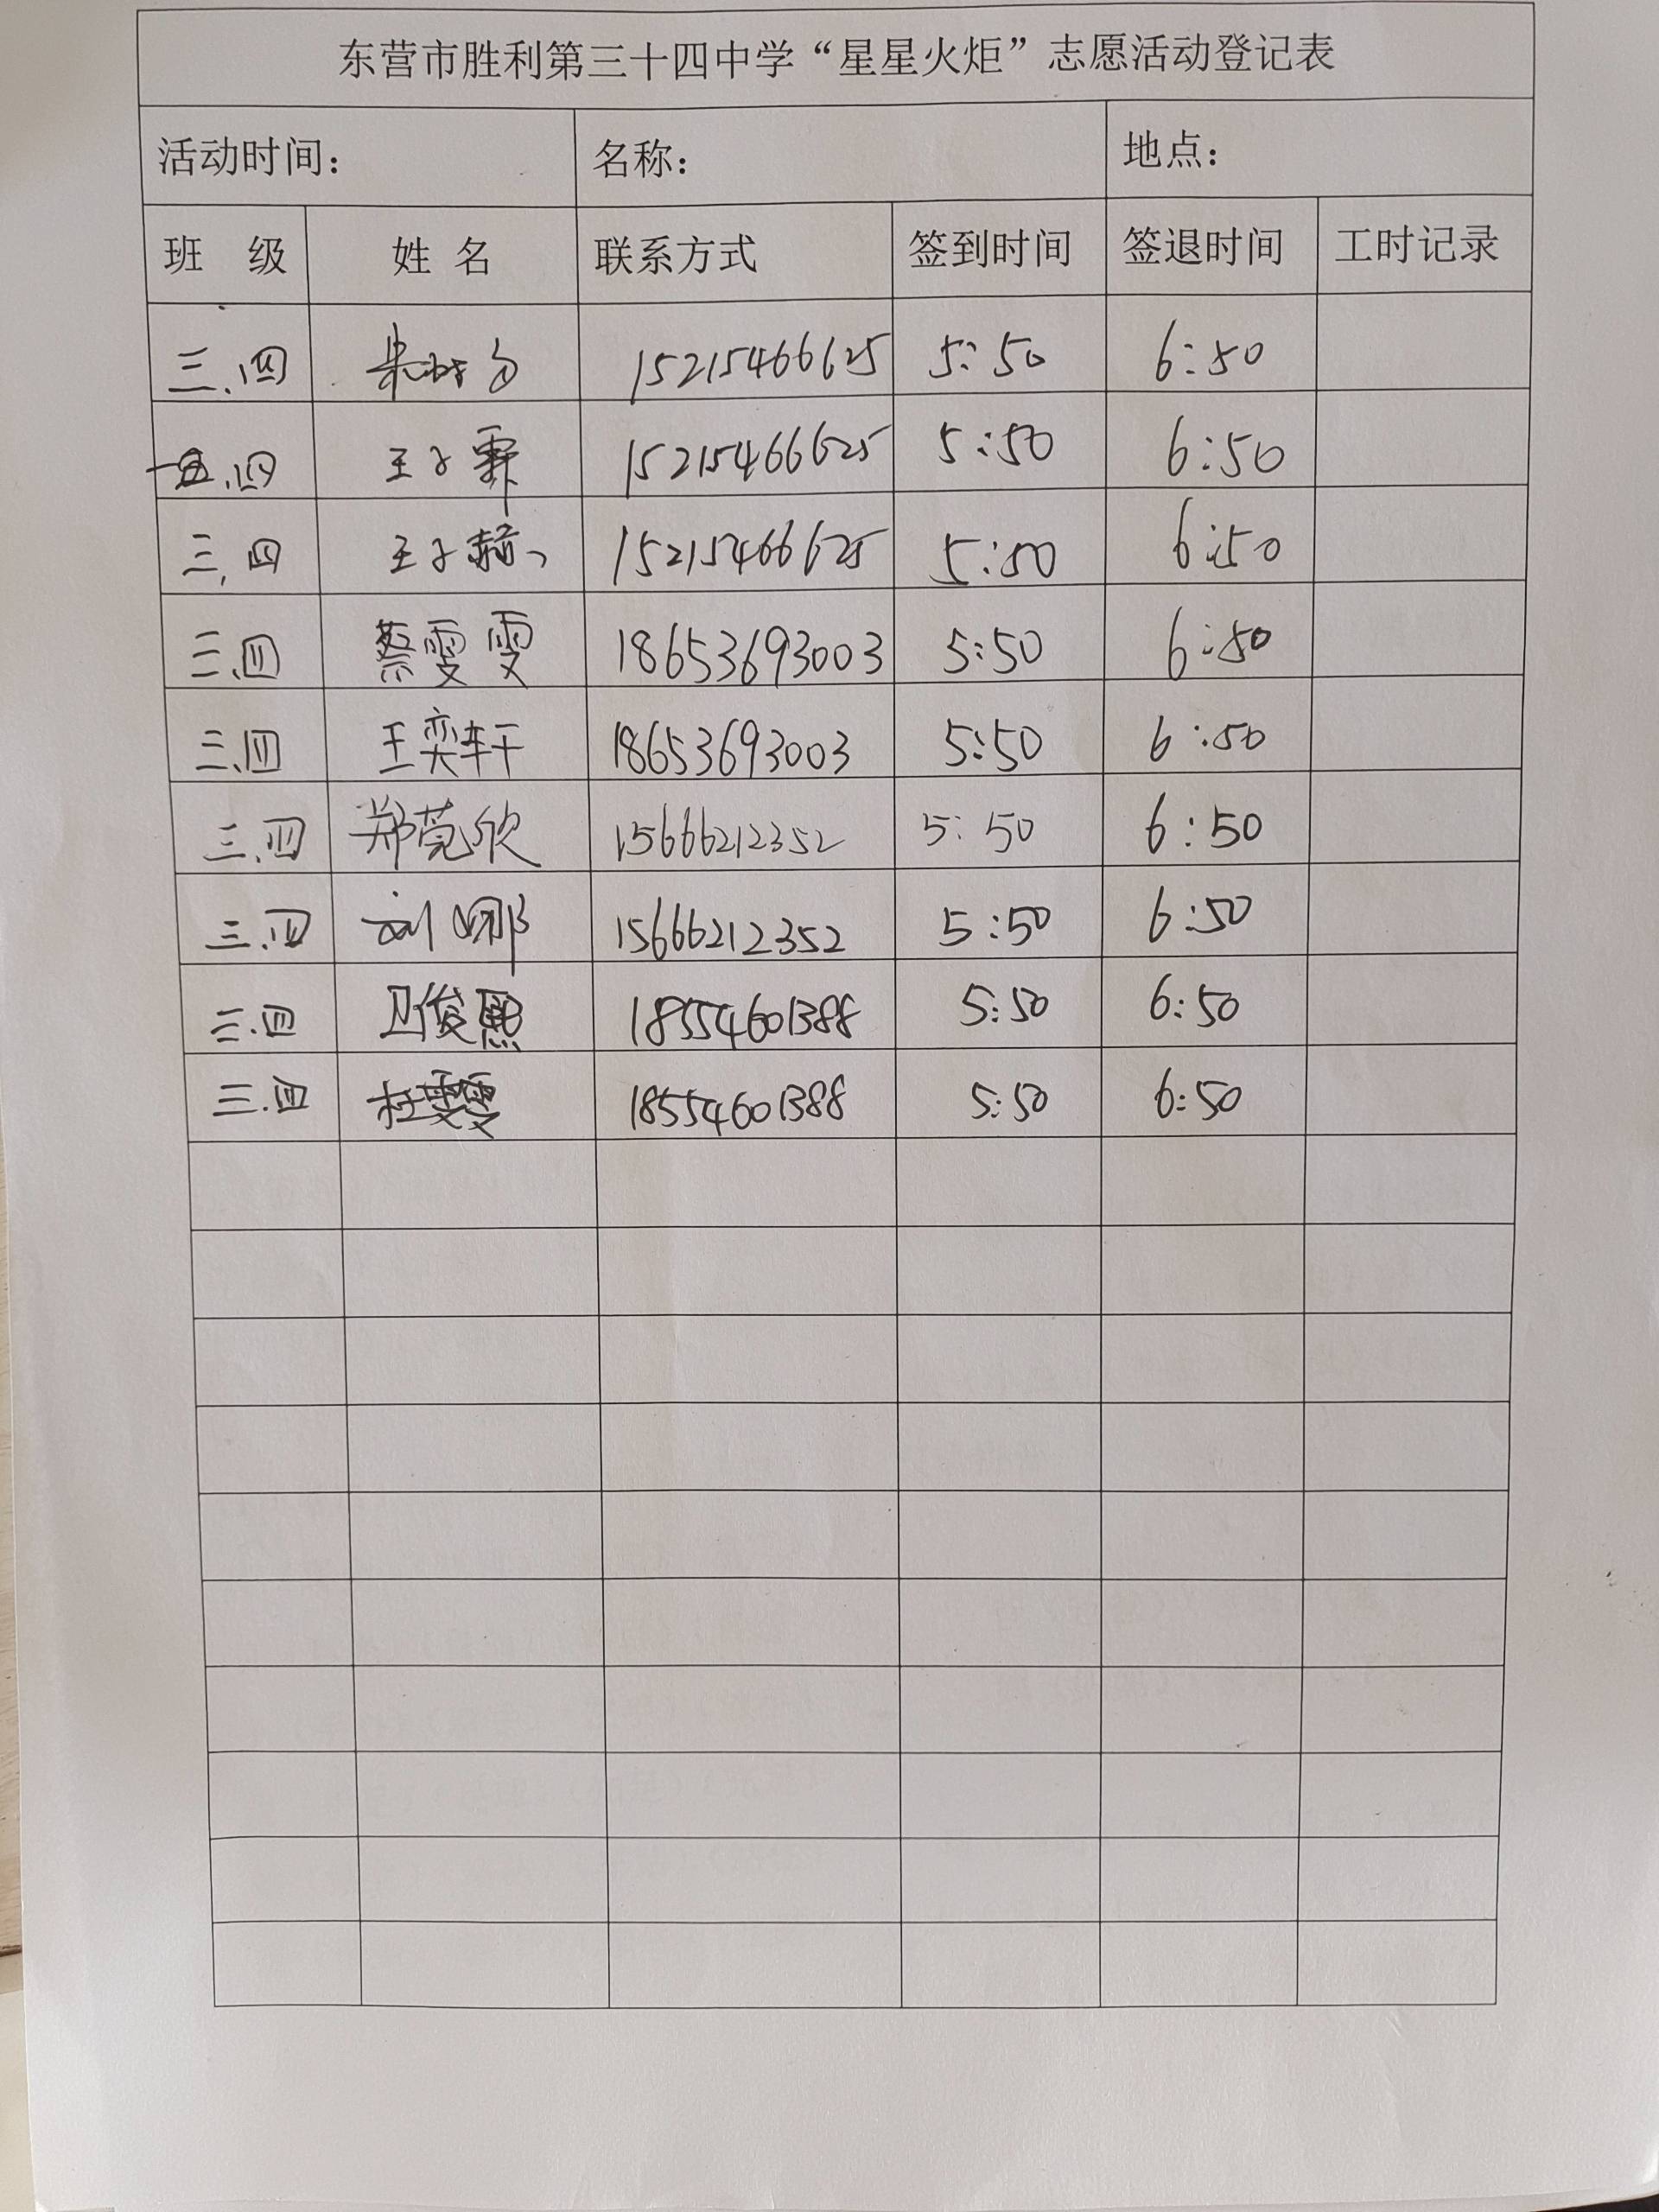 东营市胜利第三十四中学“星星火炬”志愿活动登记表
活动时间： 名称： 地点：
班 级 姓 名 联系方式 签到时间 签退时间 工时记录
三.四 15215466625 5:50 6:50
五.四 王子霏 15215466625 5:50 6:50
三.四 王子赫 15215466625 5:50 6:50
三.四 蔡雯雯 18653693003 5:50 6:50
三.四 王奕轩 18653693003 5:50 6:50
三.四 郑莞欣 15666212352 5:50 6:50
三.四 刘娜 15666212352 5:50 6:50
三.四 卫俊熙 18554601388 5:50 6:50
三.四 杜雯雯 18554601388 5:50 6:50